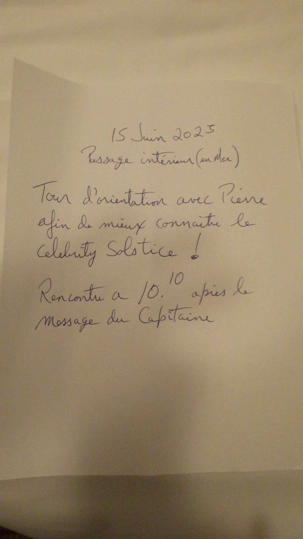 15 Juin 2025
Passage intérieur (en Mer)
Tour d'orientation avec Pierre
afin de mieux connaitre le
Celebrity Solstice !
Rencontre a 10.10 après le
message du Capitaine